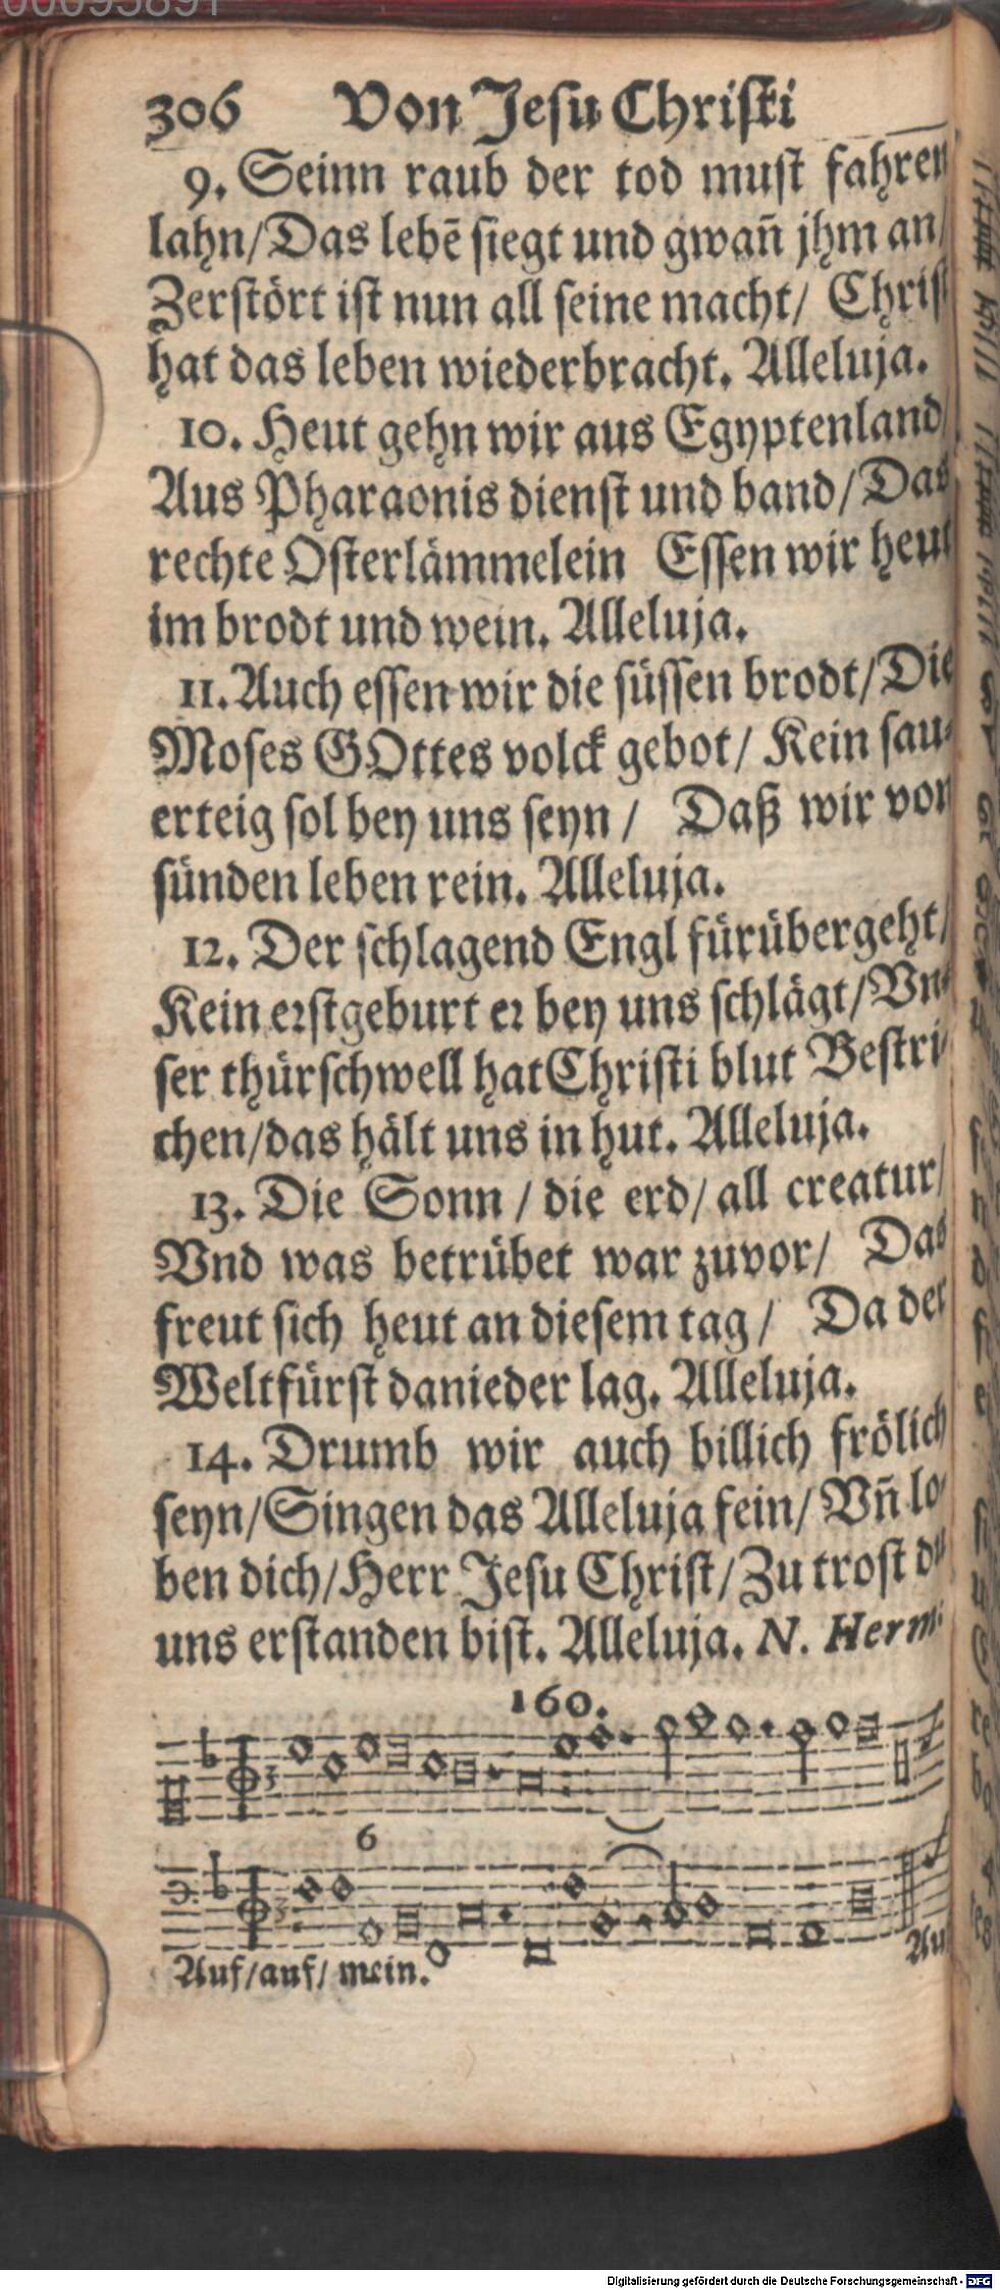 00095891
306 Von Jesu Christi
9. Seinn raub der tod must fahren
lahn/Das lebē siegt und gwañ jhm an/
Zerstört ist nun all seine macht/ Christ
hat das leben wiederbracht. Alleluja.
10. Heut gehn wir aus Egyptenland/
Aus Pharaonis dienst und band/Das
rechte Osterlämmelein Essen wir heut
im brodt und wein. Alleluja.
11. Auch essen wir die süssen brodt/Die
Moses GOttes volck gebot/ Kein sau-
erteig sol bey uns seyn / Daß wir von
sünden leben rein. Alleluja.
12. Der schlagend Engl fürübergeht/
Kein erstgeburt er bey uns schlägt/Vn-
ser thürschwell hat Christi blut Bestri-
chen/das hält uns in hut. Alleluja.
13. Die Sonn / die erd/ all creatur/
Vnd was betrübet war zuvor/ Das
freut sich heut an diesem tag / Da der
Weltfürst danieder lag. Alleluja.
14. Drumb wir auch billich frölich
seyn/Singen das Alleluja fein/ Vñ lo-
ben dich/Herr Jesu Christ/Zu trost du
uns erstanden bist. Alleluja. N. Herm.
160.
6
Auf/auf/ mein. Au
Digitalisierung gefördert durch die Deutsche Forschungsgemeinschaft - DFG